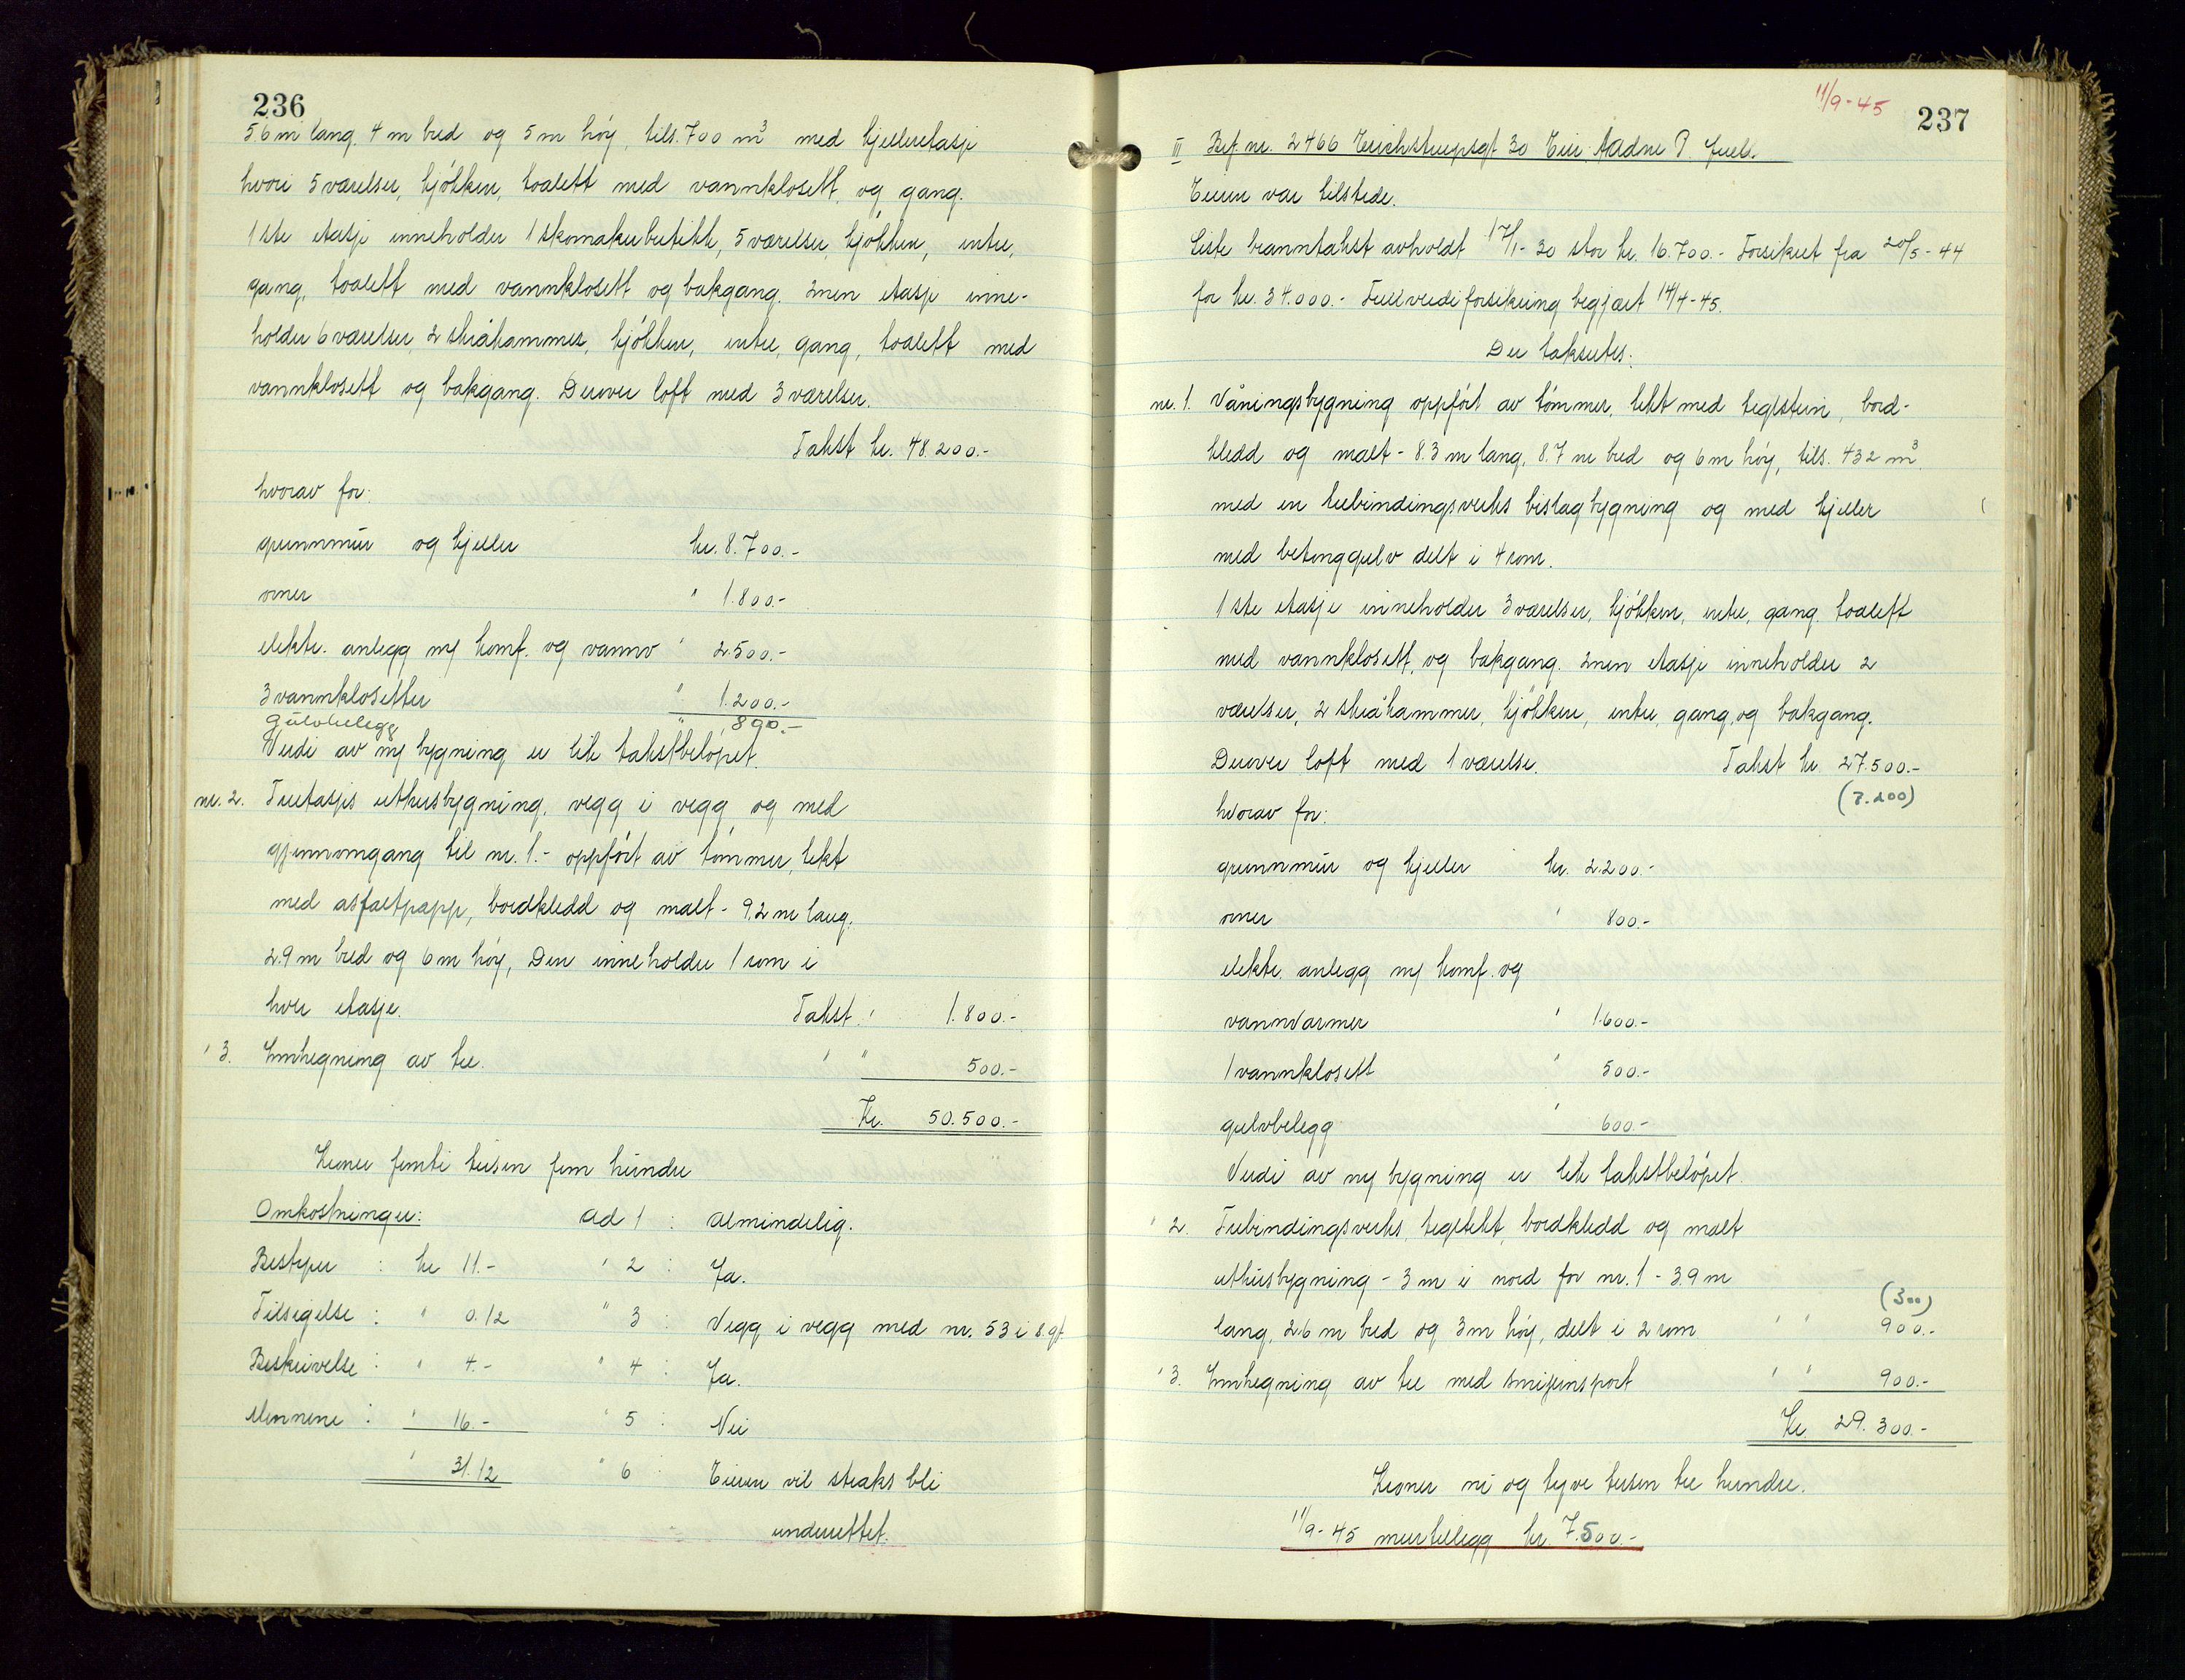 236
5.6 m lang, 4 m bred og 5 m høy, tils. 700 m³ med kjelleretasje
hvori 5 værelser, kjøkken, toalett med vannklosett, og gang.
1ste etasje inneholder 1 skomakerbutikk, 5 værelser, kjøkken, entre,
gang, toalett med vannklosett og bakgang. 2nen etasje inne-
holder 6 værelser, 2 skråkammer, kjøkken, entre, gang, toalett med
vannklosett og bakgang. Derover loft med 3 værelser.
Takst kr. 48.200.-
hvorav for:
grunnmur og kjeller kr. 8.700.-
ovner " 1.800.-
elektr. anlegg m/ komf. og vannv " 2.500.-
3 vannklosetter " 1.200.-
Gulvbelegg " 890.-
Verdi av ny bygning er lik takstbeløpet.
nr. 2. Toetasjes uthusbygning, vegg i vegg og med
gjennomgang til nr. 1.- oppført av tømmer, tekt
med asfaltpapp, bordkledd og malt - 9.2 m lang,
2.9 m bred og 6 m høy, Den inneholder 1 rom i
hver etasje. Takst " 1.800.-
" 3. Innhegning av tre. " " 500.-
Kr. 50.500.-
Kroner femti tusen fem hundre
Omkostninger: ad 1 : Almindelig.
Bestyrer : kr 11.- " 2 : Ja.
Tilsigelse : " 0.12 " 3 : Vegg i vegg med nr. 53 i S.gt.
Beskrivelse : " 4.- " 4 : Ja.
Mennene : " 16.- " 5 : Nei
" 31.12 " 6 : Eieren vil straks bli
underrettet.
11/9-45
237
III Bef. nr. 2466 Erichstrupsgt. 30 Eier: Aadne P. Juell.
Eieren var tilstede.
Siste branntakst avholdt 17/1-30 stor kr. 16.700.- Forsikret fra 20/5-44
for kr. 34.000.- Fullverdiforsikring begjært 14/4-45.
Der takseres:
nr. 1. Våningsbygning oppført av tømmer, tekt med teglstein, bord-
kledd og malt - 8.3 m lang, 8.7 m bred og 6 m høy, tils. 432 m³.
med en trebindingsverks bislagbygning og med kjeller
med betonggulv delt i 4 rom.
1ste etasje inneholder 3 værelser, kjøkken, entre, gang, toalett
med vannklosett, og bakgang. 2nen etasje inneholder 2
værelser, 2 skråkammer, kjøkken, entre, gang, og bakgang.
Derover loft med 1 værelse. Takst kr. 27.500.-
(7.200)
hvorav for:
grunnmur og kjeller kr. 2.200.-
ovner " 800.-
elektr. anlegg m/ komf. og
vannvarmer " 1.600.-
1 vannklosett " 500.-
gulvbelegg " 600.-
Verdi av ny bygning er lik takstbeløpet.
" 2. Trebindingsverks, tegltekt, bordkledd og malt
uthusbygning - 3 m i nord for nr. 1 - 3.9 m
(300)
lang, 2.6 m bred og 3 m høy, delt i 2 rom " " 900.-
" 3. Innhegning av tre med smijernsport " " 900.-
Kr 29.300.-
Kroner ni og tyve tusen tre hundre.
11/9-45 mertillegg kr. 7.500.-